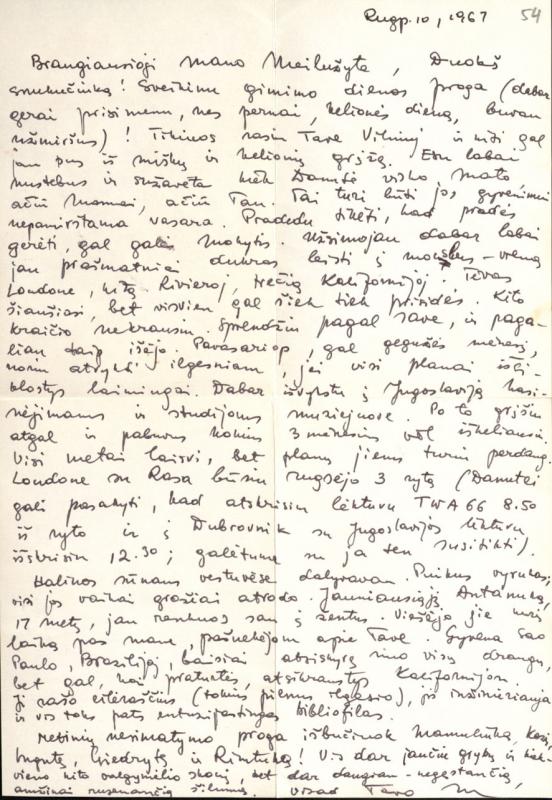 Rugp. 10, 1967 54
Brangiausioji mano Meilužyte, Duokš
snukučiuką! Sveikinu gimimo dienos proga (dabar
gerai prisimenu, nes pernai, kelionės dieną, buvau
užmiršus)! Tikiuos rasiu Tave Vilniuj ir kiti gal
jau bus iš miškų ir kelionių grįžę. Esu labai
nustebus ir sužavėta kiek Danutė visko mato
ačiū Mamai, ačiū Tau. Tai turi būti jos gyvenimui
nepamirštama vasara. Pradedu tikėti, kad pradės
gerėti, gal galės mokytis. Užsimojau dabar labai
jau prašmatniai dukras leisti į mokslus – vieną
Londone, kitą Rivieroj, trečią Kalifornijoj. Tėvas
šiaušiasi, bet visvien gal šiek tiek prisidės. Kito
kraičio nekrausiu. Sprendžiu pagal save, ir paga-
liau taip išėjo. Pavasariop, gal gegužės mėnesį,
noriu atvykti ilgesniam, jei visi planai išsi-
klostys laimingai. Dabar išvykstu į Jugoslaviją kasi-
nėjimams ir studijoms muziejuose. Po to grįšiu
atgal ir pabuvus kokius 3 mėnesius vėl iškeliausiu
Visi metai laisvi, bet planų jiems turiu perdaug.
Londone su Rasa būsiu rugsėjo 3 rytą (Danutei
gali pasakyti, kad atskrisiu lėktuvu TWA 66 8.50
iš ryto ir į Dubrovnik su Jugoslavijos lėktuvu
išskrisiu 12.30; galėtume su ja ten susitikti).
Halinos sūnaus vestuvėse dalyvavau. Puikus vyrukas,
visi jos vaikai gražiai atrodo. Jauniausiąjį Antanuką,
17 metų, jau renkuos sau į žentus. Viešėjo jie kurį
laiką pas mane, pašnekėjom apie Tave. Gyvena Sao
Paulo, Brazilijoj, baisiai atsiskyrę nuo visų draugų,
bet gal, kai praturtės, atsikraustys Kalifornijon.
Ji rašo eilėraščius (tokius pilnus ilgesio), jis inžinieriauja
ir vis toks pats entuziastingas bibliofilas.
Metinių nesimatymo proga išbučiuok Mamuliuką,
Mygutą, Giedrytę ir Rimtuką! Vis dar jaučiu grybų ir kiek-
vieno kito valgymėlio skonį, bet dar daugiau – negęstančią,
amžinai rusenančią šilumą. Visad Tavo M